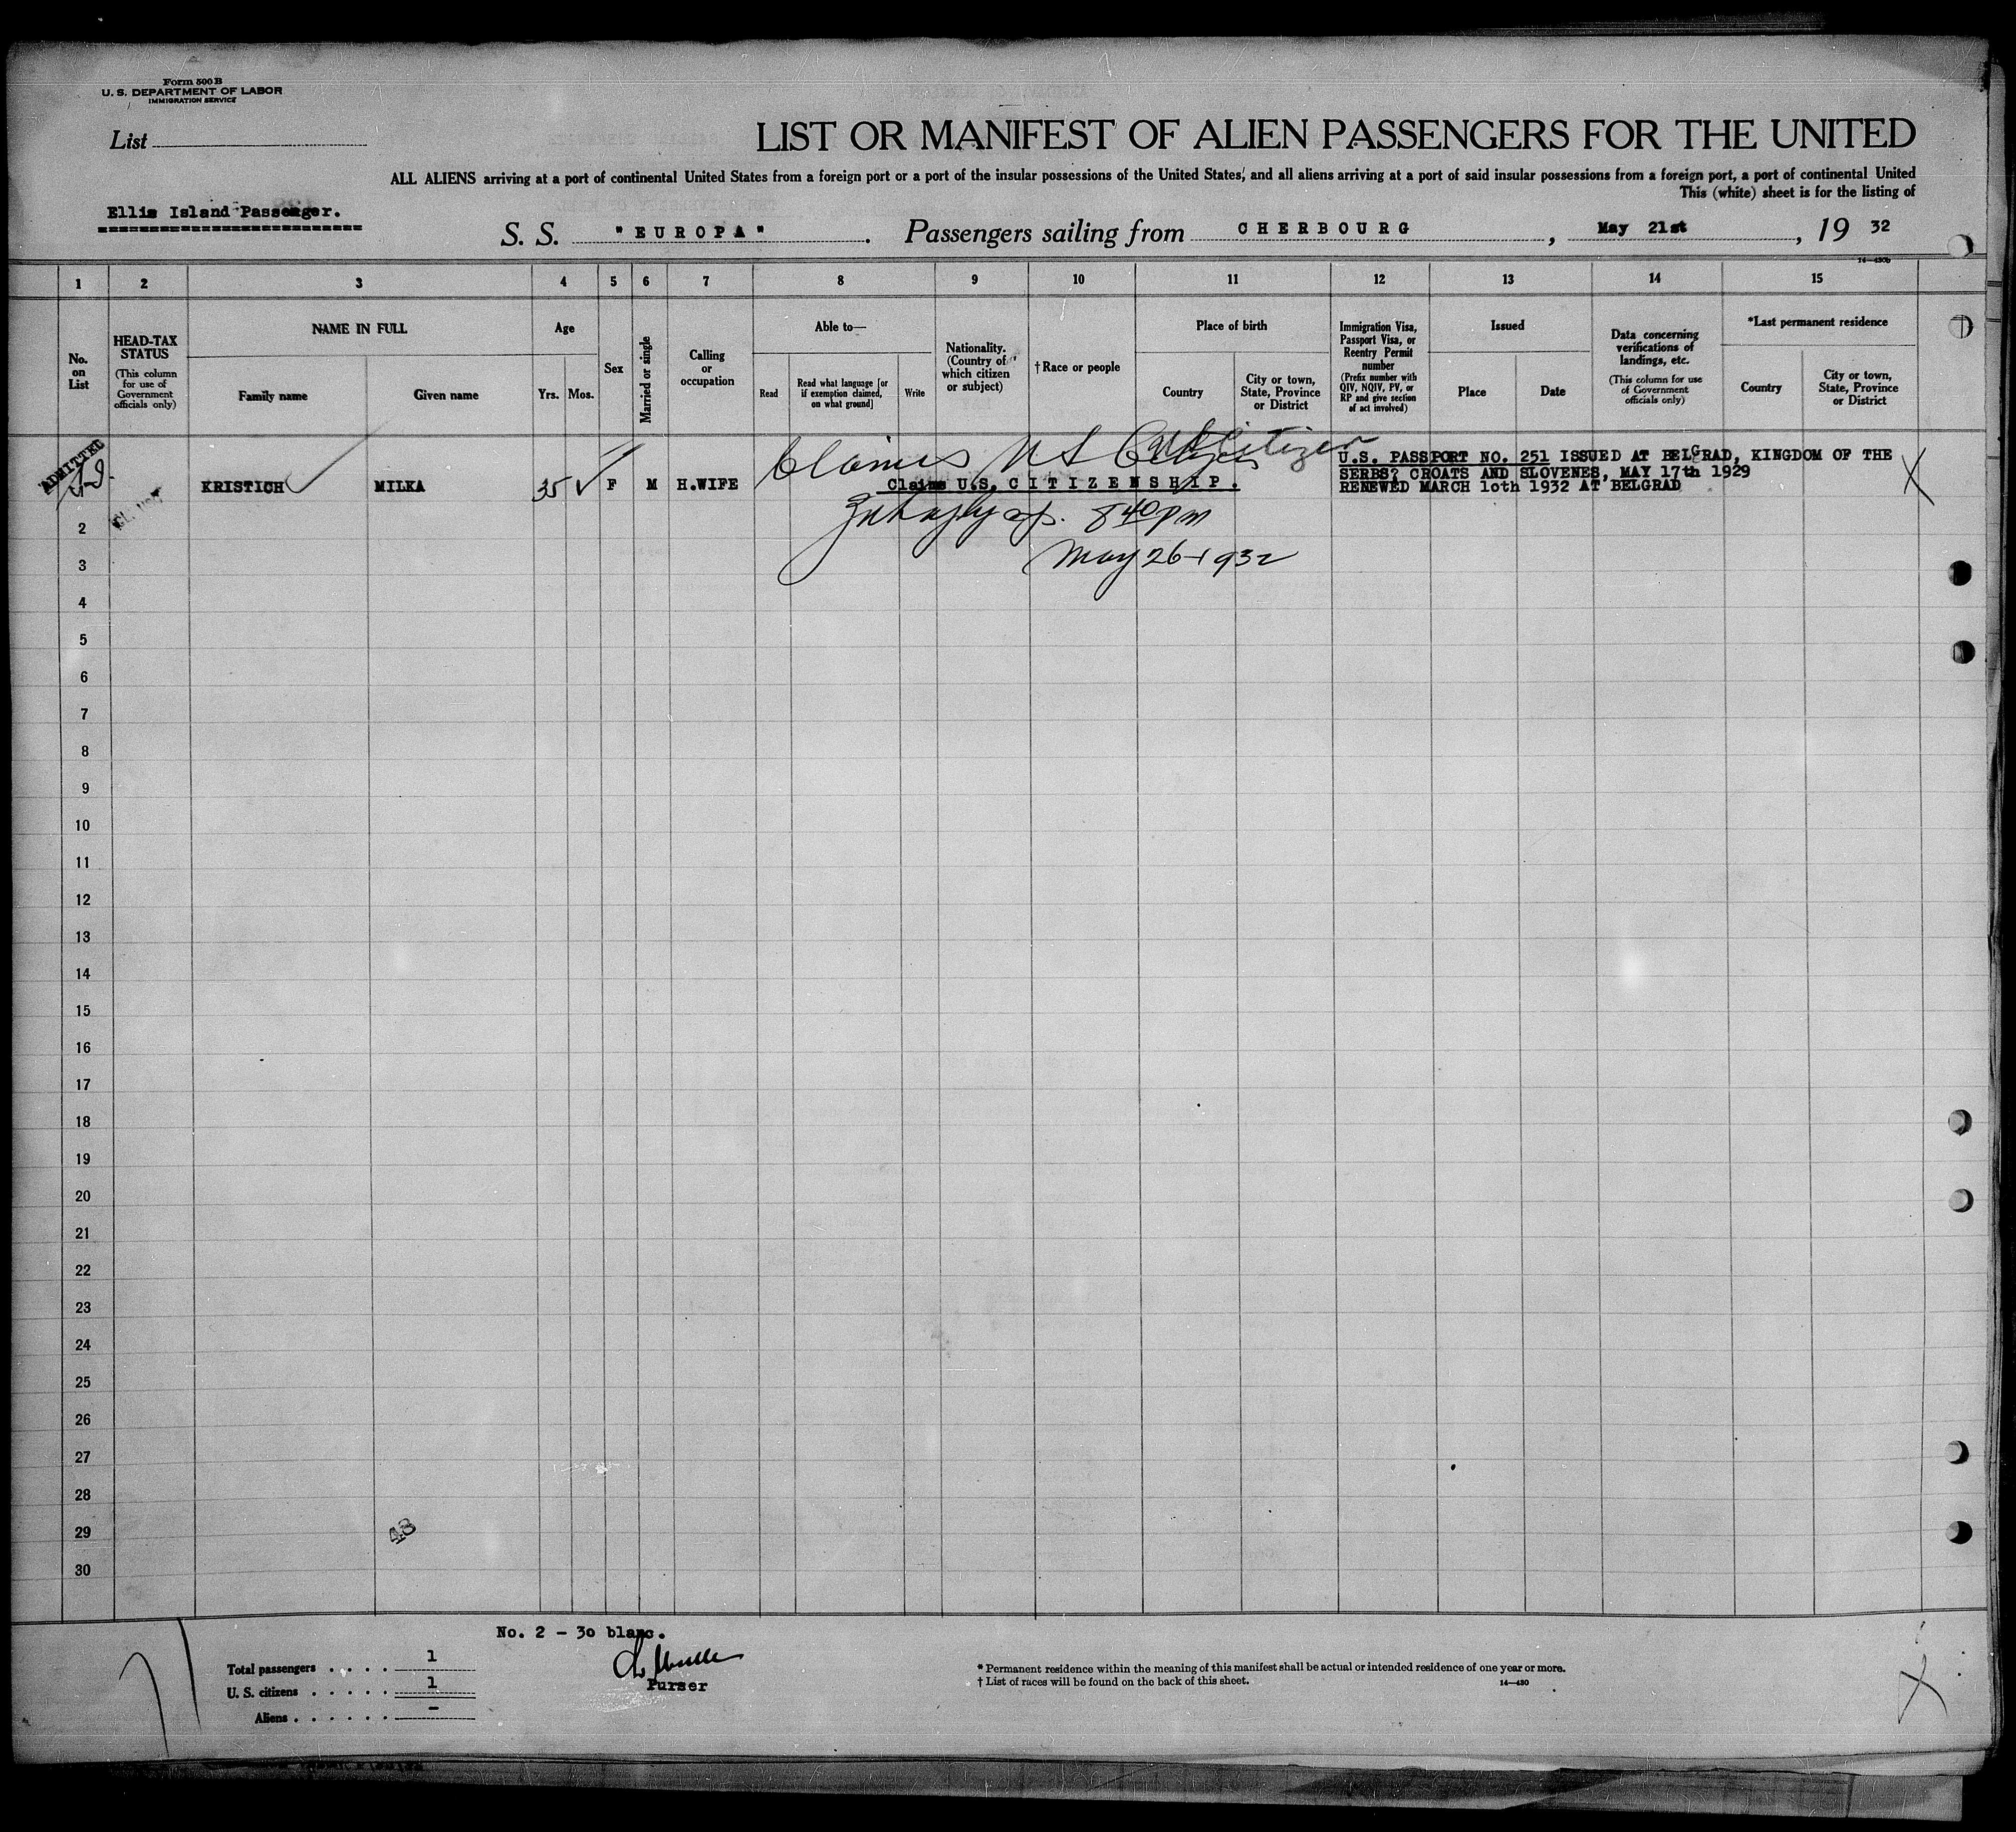 Form 500 B
U. S. DEPARTMENT OF LABOR
IMMIGRATION SERVICE
List
LIST OR MANIFEST OF ALIEN PASSENGERS FOR THE UNITED
ALL ALIENS arriving at a port of continental United States from a foreign port or a port of the insular possessions of the United States, and all aliens arriving at a port of said insular possessions from a foreign port, a port of continental United
This (white) sheet is for the listing of
Ellis Island Passenger.
S. S. "EUROPA". Passengers sailing from CHERBOURG, May 21st, 19 32
14—430b
1 2 3 4 5 6 7 8 9 10 11 12 13 14 15
No. on List
HEAD-TAX STATUS
(This column for use of Government officials only)
NAME IN FULL
Family name
Given name
Age
Yrs. Mos.
Sex
Married or single
Calling or occupation
Able to—
Read
Read what language [or if exemption claimed, on what ground]
Write
Nationality. (Country of which citizen or subject)
† Race or people
Place of birth
Country
City or town, State, Province or District
Immigration Visa, Passport Visa, or Reentry Permit number
(Prefix number with QIV, NQIV, PV, or RP and give section of act involved)
Issued
Place
Date
Data concerning verifications of landings, etc.
(This column for use of Government officials only)
*Last permanent residence
Country
City or town, State, Province or District
ADMITTED
KRISTICH MILKA 35 F M H.WIFE
Claims U S Citizen
Claims U.S. CITIZENSHIP.
U.S. PASSPORT NO. 251 ISSUED AT BELGRAD, KINGDOM OF THE
SERBS? CROATS AND SLOVENES, MAY 17th 1929
RENEWED MARCH 1oth 1932 AT BELGRAD
8 40 pm
May 26-1932
2
3
4
5
6
7
8
9
10
11
12
13
14
15
16
17
18
19
20
21
22
23
24
25
26
27
28
29
30
48
No. 2 - 3o blanc.
Total passengers . . . . . 1
U. S. citizens . . . . . 1
Aliens . . . . . . -
Purser
* Permanent residence within the meaning of this manifest shall be actual or intended residence of one year or more.
† List of races will be found on the back of this sheet.
14—430